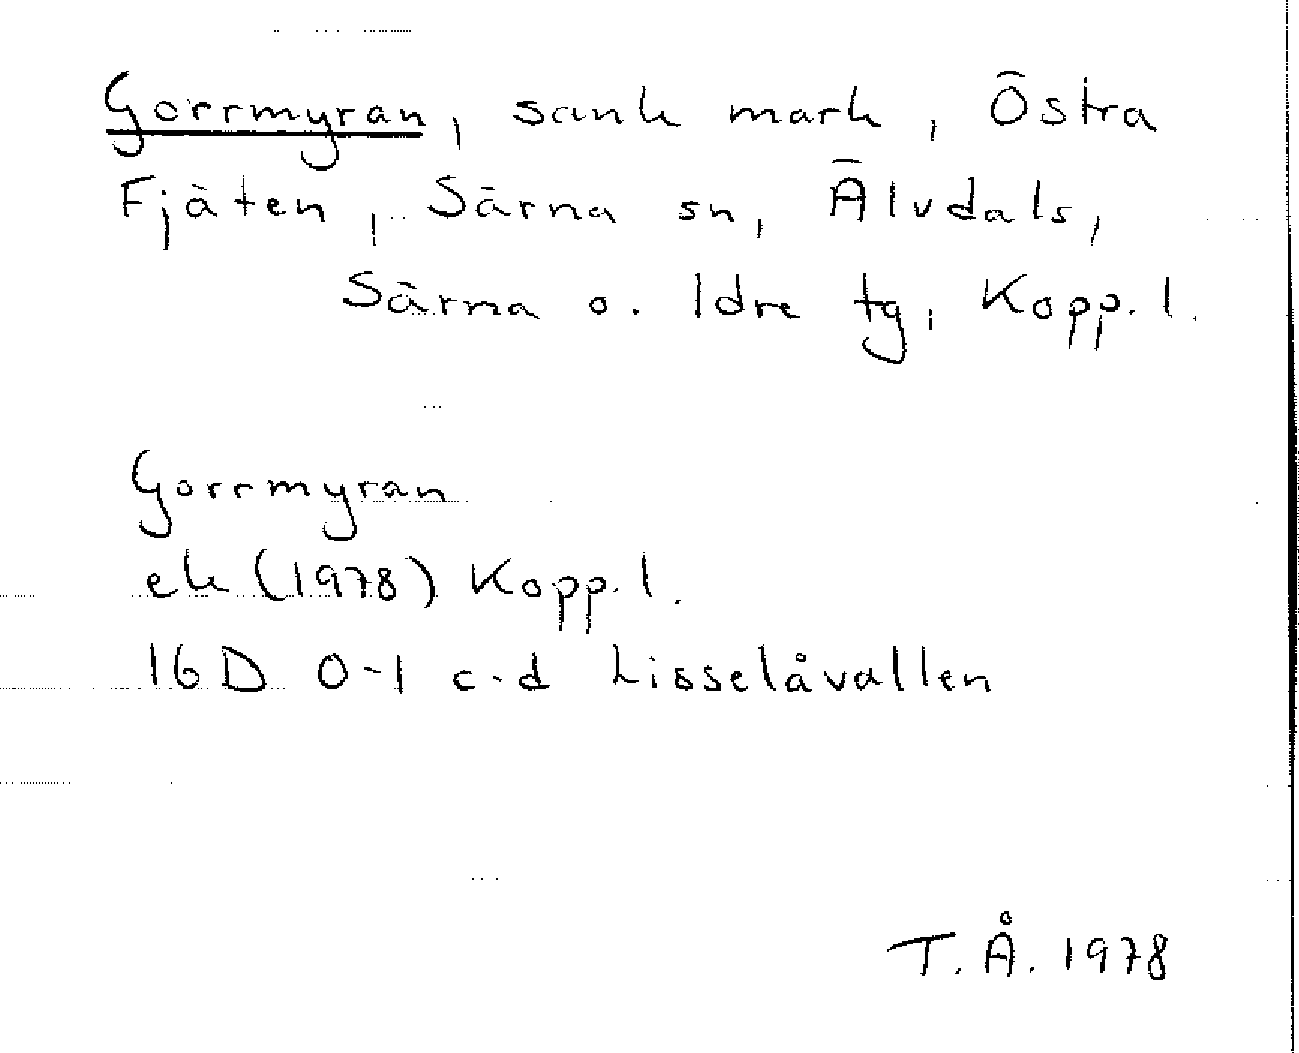 Gorrmyran, sank mark, Östra
Fjäten, Särna sn, Älvdals,
Särna o. Idre tg, Kopp. l.
Gorrmyran
ek (1978) Kopp. l.
16D 0-1 c-d Lisselåvallen
T.Å. 1978